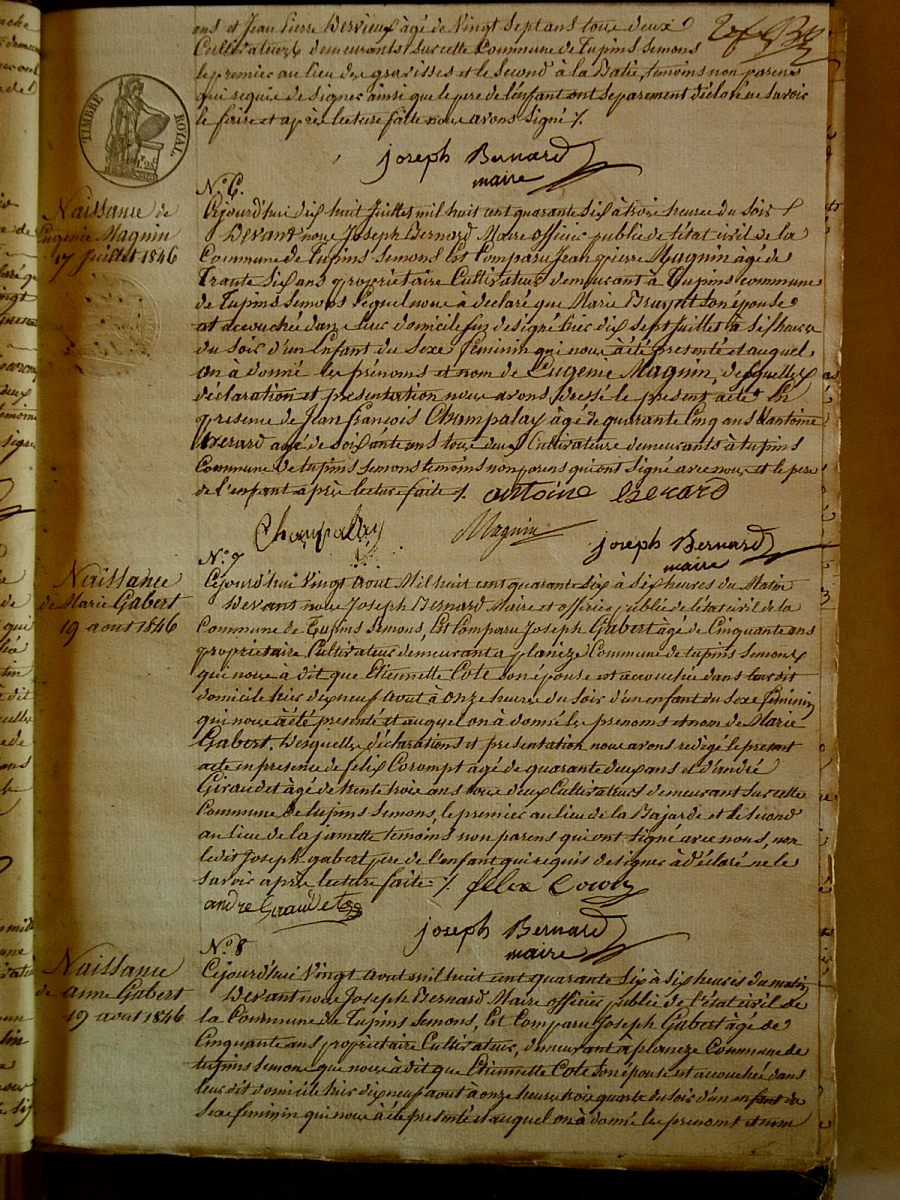 ans et Jean Pierre Dervieux âgé de Vingt Sept ans tous deux
Cultivateurs demeurants Sur cette Commune de Tupins Semons
le premier au lieu des gravisses et le Second à la Batie, temoins non parens
qui requis de signer ainsi que le pere de l'enfant ont Separement déclaré ne Savoir
le faire et après lecture faite nous avons Signé ./.
TIMBRE ROYAL
joseph Bernard
maire
N.° 6.
Naissance de
Eugenie Maguin
17 Juillet 1846
Cejourd'hui dix huit Juillet mil huit cent quarante Six à trois heures du Soir
Devant nous Joseph Bernard Maire officier publie de l'état civil de la
Commune de Tupins Semons Est Comparu Jean pierre Maguin âgé de
Trante Six ans propriétaire Cultivateur demeurant à Tupins commune
de Tupins Semons lequel nous à declaré que Marie Bruyat Son épouse
at accouchée dans leur domicile Susdésigné hier dix Sept Juillet à Six heures
du Soir d'un Enfant du Sexe feminin qui nous à été presenté et auquel
on à donné les prénoms et nom de Eugenie Maguin, desquelles
déclaration et presentation nous avons dressé le present acte En
presense de Jean François Champalay âgé de quarante Cinq ans & antoine
agé de Soixante ans tous deux Cultivateurs demeurants à tupins
Commune de tupins Semons temoins non parens qui ont Signé avec nous et le pere
de l'enfant après lecture faite ./. antoine
Champallay Maguin
joseph Bernard
maire
N.° 7
Naissance
de Marie Gabert
19 aout 1846
Cejourd'hui Vingt aout Mil huit cent quarante Six à Six heures du Matin
Devant nous Joseph Bernard Maire et officier publie de l'état civil de la
Commune de Tupins Semons, Est Comparu Joseph Gabert âgé de Cinquante ans
propriétaire Cultivateur demeurant a planèze Commune de tupins Semons
qui nous à dit que Etiennette Cote Son épouse est accouchée dans leur dit
domicile hier dix neuf aout à onze heures du Soir d'un enfant du Sexe feminin
qui nous à été presenté et auquel on à donné les prenoms et nom de Marie
Gabert. Desquelles déclarations et presentation nous avons redigé le present
acte en presence de felix Corompt agé de quarante deux ans et d'andré
Giraudet âgé de trente trois ans tous deux Cultivateurs demeurant Sur cette
Commune de tupins Semons, le premier au lieu de la Bajarde et le Second
au lieu de la jamette temoins non parens qui ont Signé avec nous, non
le dit Joseph gabert pere de l'enfant qui requis de signer à déclaré ne le
Savoir après lecture faite ./. felix
andre Giraudet
joseph Bernard
maire
N.° 8
Naissance
de anne Gabert
19 aout 1846
Cejourd'hui Vingt aout mil huit cent quarante Six à Six heures du matin,
Devant nous Joseph Bernard Maire officier publie de l'état civil de
la Commune de Tupins Semons, Est Comparu Joseph Gabert âgé de
Cinquante ans propriétaire Cultivateur, demeurant à planeze Commune de
tupins Semons que nous à dit que Etiennette Cote Son épouse est accouchée dans
leur dit domicile hier dix neuf aout à onze heures trois quarts du Soir d'un enfant du
Sexe feminin qui nous à été presenté et auquel on à donné les prenoms et nom